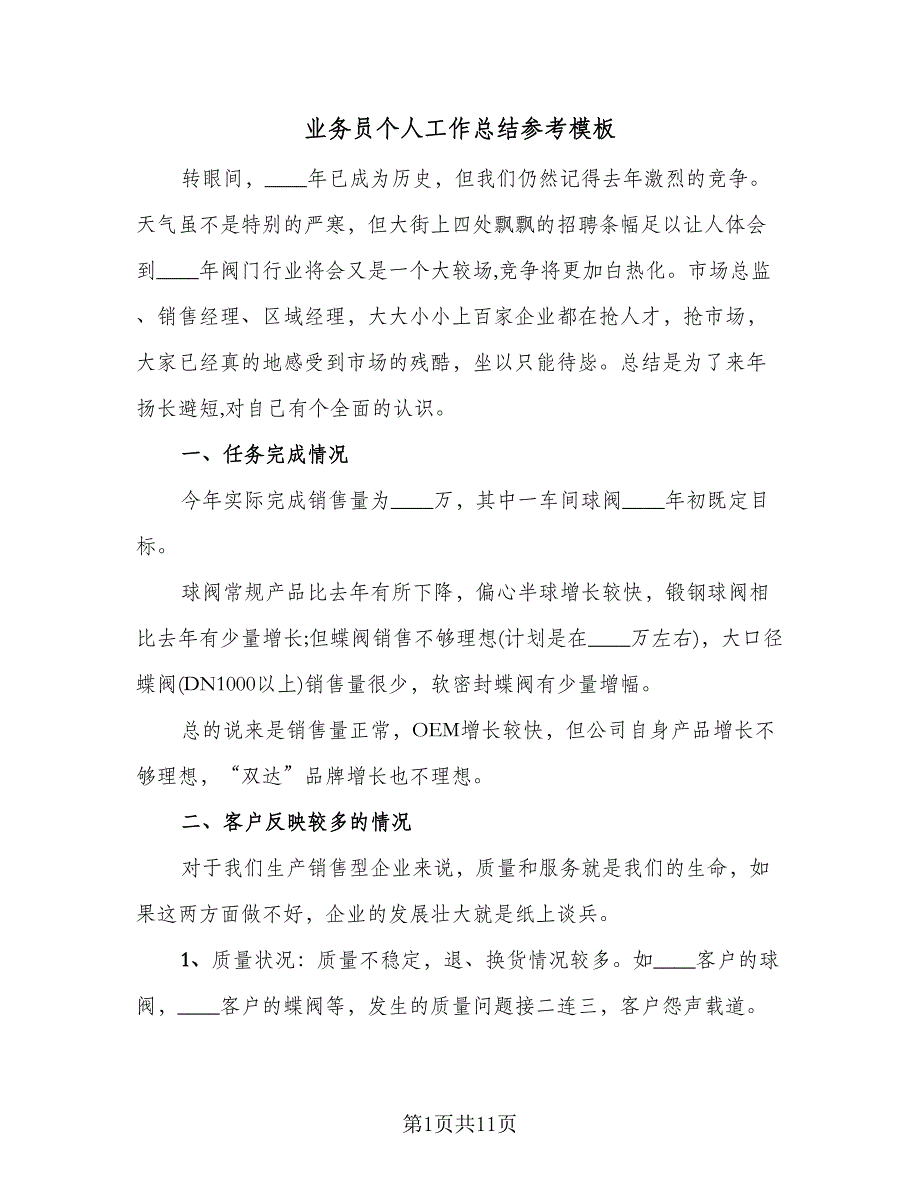 业务员个人工作总结参考模板
转眼间，____年已成为历史，但我们仍然记得去年激烈的竞争。
天气虽不是特别的严寒，但大街上四处飘飘的招聘条幅足以让人体会
到____年阀门行业将会又是一个大较场,竞争将更加白热化。市场总监
、销售经理、区域经理，大大小小上百家企业都在抢人才，抢市场，
大家已经真的地感受到市场的残酷，坐以只能待毙。总结是为了来年
扬长避短,对自己有个全面的认识。
一、任务完成情况
今年实际完成销售量为____万，其中一车间球阀____年初既定目
标。
球阀常规产品比去年有所下降，偏心半球增长较快，锻钢球阀相
比去年有少量增长;但蝶阀销售不够理想(计划是在____万左右)，大口径
蝶阀(DN1000以上)销售量很少，软密封蝶阀有少量增幅。
总的说来是销售量正常，OEM增长较快，但公司自身产品增长不
够理想，“双达”品牌增长也不理想。
二、客户反映较多的情况
对于我们生产销售型企业来说，质量和服务就是我们的生命，如
果这两方面做不好，企业的发展壮大就是纸上谈兵。
1、质量状况：质量不稳定，退、换货情况较多。如____客户的球
阀，____客户的蝶阀等，发生的质量问题接二连三，客户怨声载道。
第1页共11页